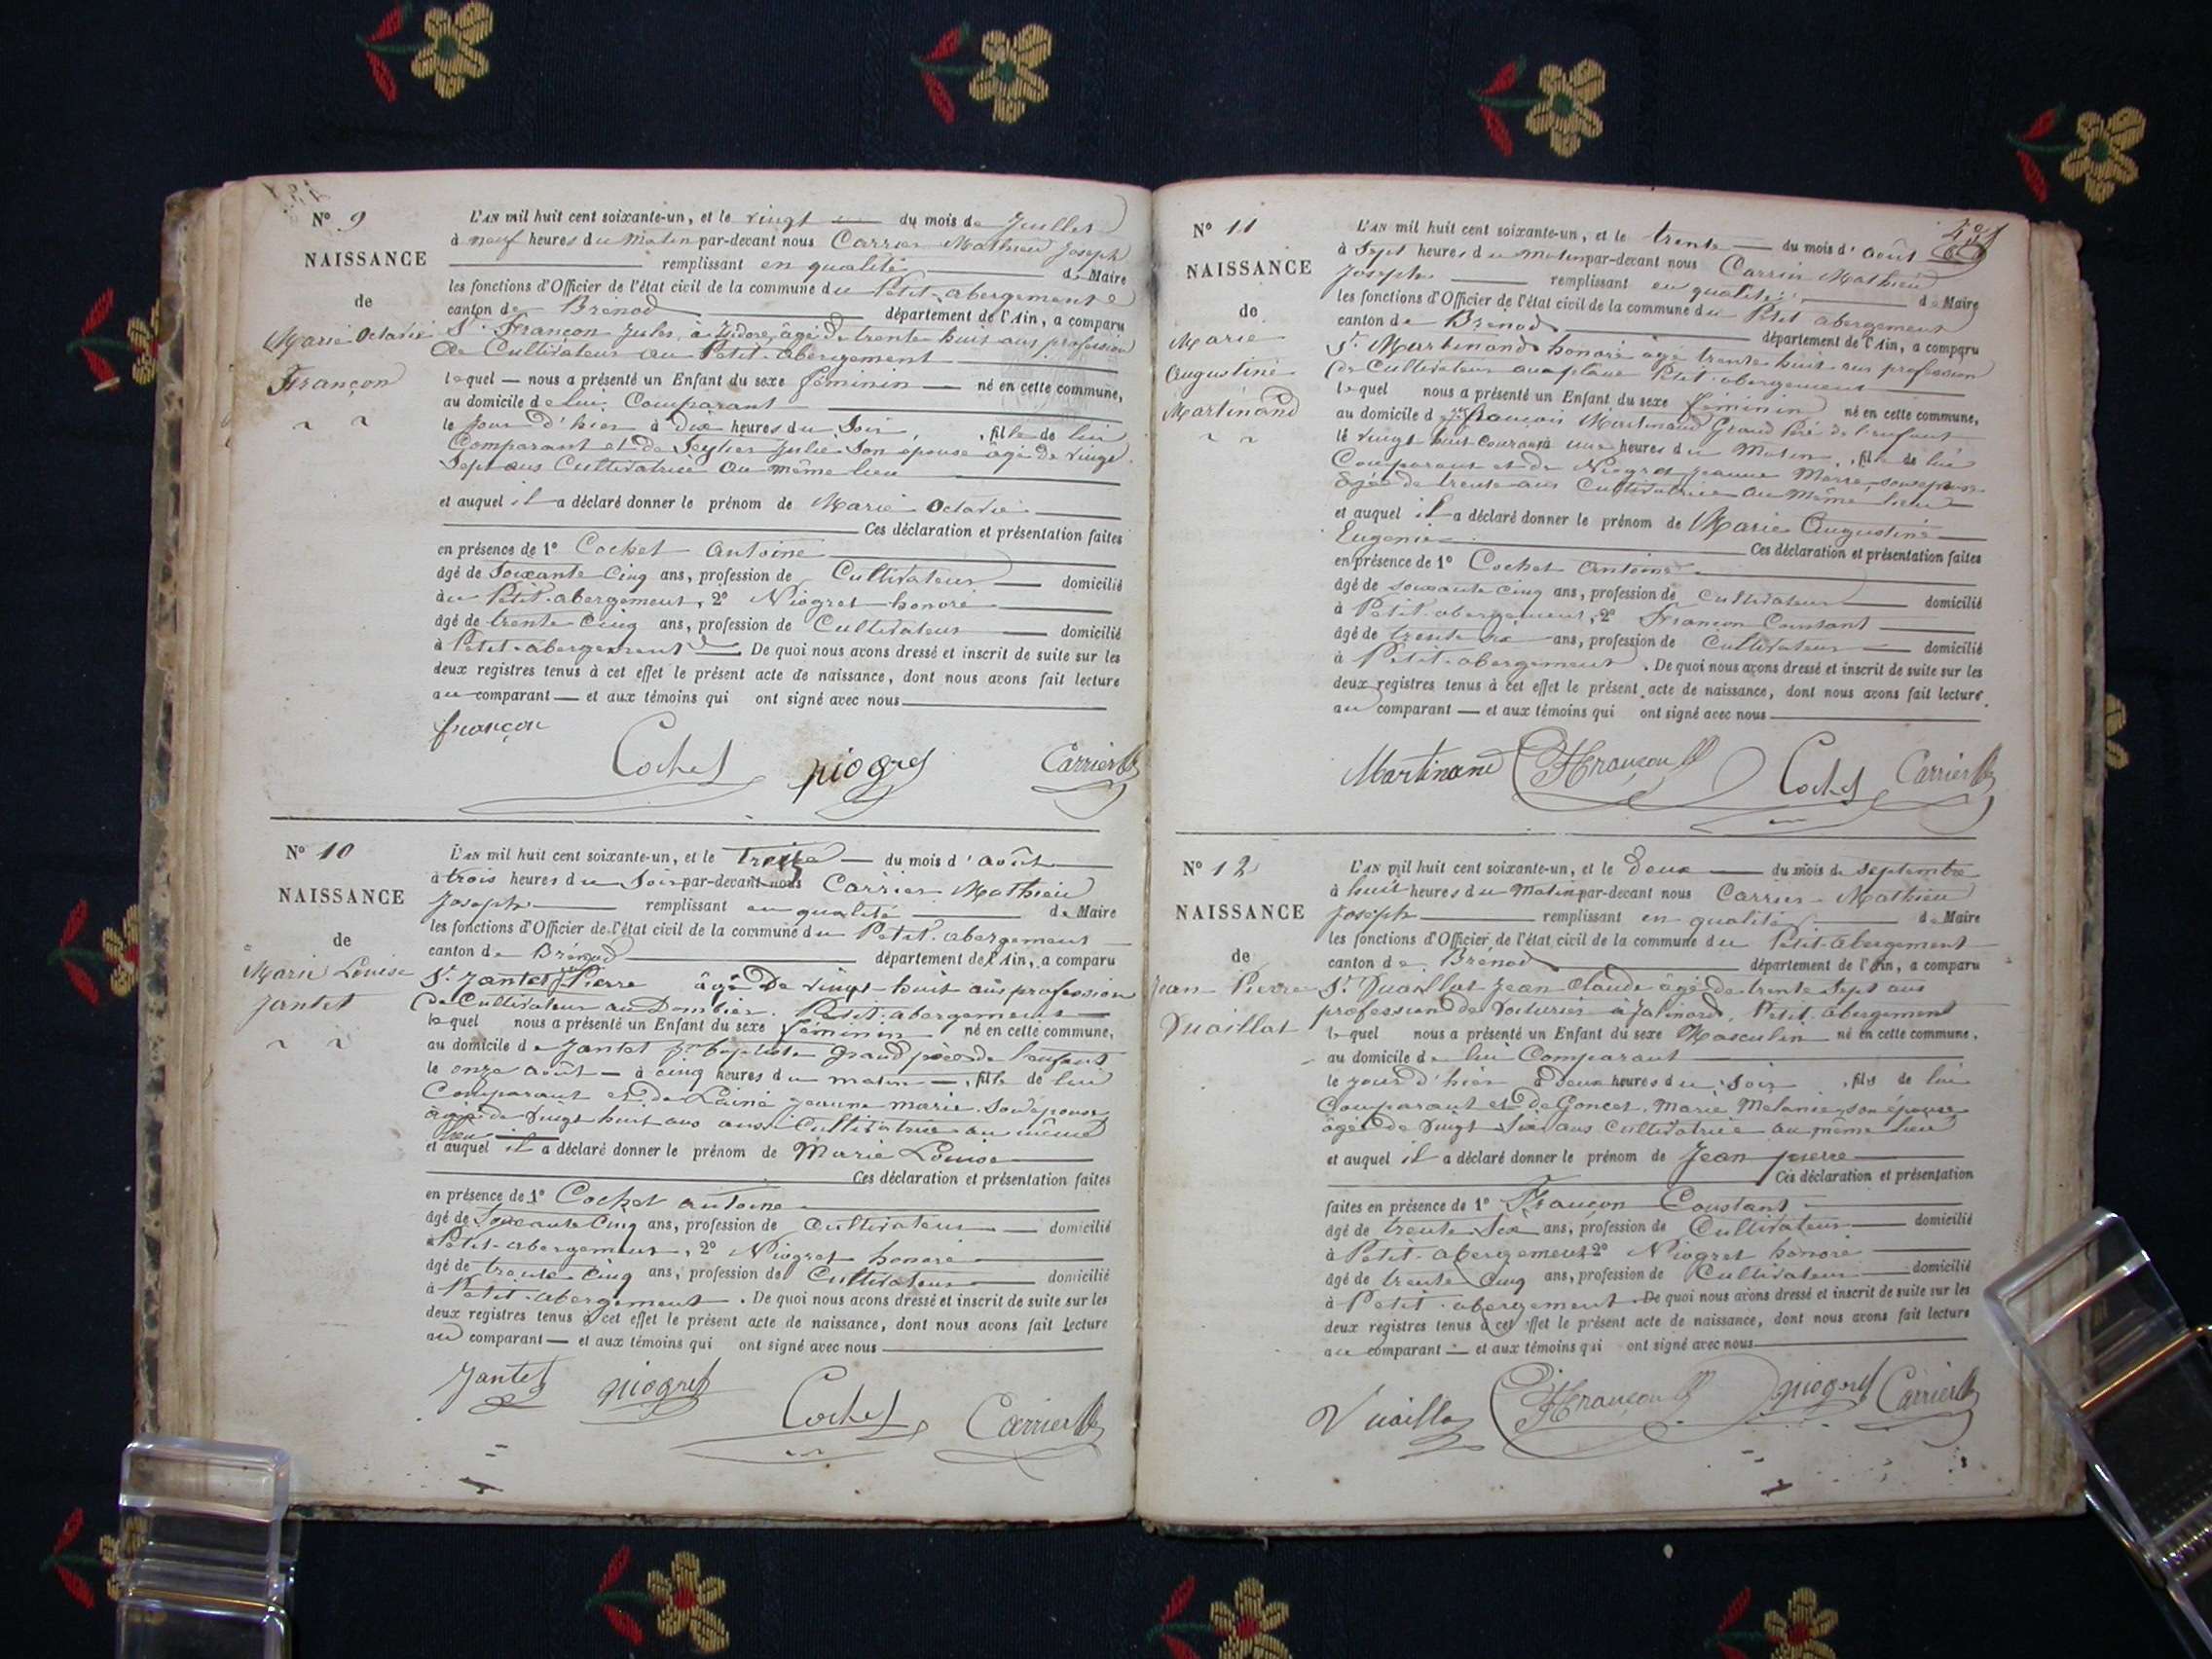 N° 9
NAISSANCE
de
Marie Octavie
Françon
L'AN mil huit cent soixante-un, et le vingt du mois de Juillet
à neuf heures du Matin par-devant nous Carrier Mathieu Joseph
remplissant en qualité de Maire
les fonctions d'Officier de l'état civil de la commune du Petit-abergement
canton de Brénod département de l'Ain, a comparu
Sr. Françon Jules, à Izidore, âgé de trente huit ans profession
de Cultivateur au Petit-abergement
lequel nous a présenté un Enfant du sexe féminin né en cette commune,
au domicile de lui Comparant
le jour d'hier à dix heures du Soir, fille de lui
Comparant et de Seytier Julie Son épouse agé de vingt
Sept ans Cultivatrice au même lieu
et auquel il a déclaré donner le prénom de Marie Octavie
Ces déclaration et présentation faites
en présence de 1° Cochet Antoine
âgé de Soixante Cinq ans, profession de Cultivateur domicilié
au Petit-abergement, 2° Niogret honoré
âgé de trente Cinq ans, profession de Cultivateur domicilié
à Petit-abergement De quoi nous avons dressé et inscrit de suite sur les
deux registres tenus à cet effet le présent acte de naissance, dont nous avons fait lecture
au comparant et aux témoins qui ont signé avec nous
françon
Cochet niogret Carrier
N° 10
NAISSANCE
de
Marie Louise
Jantet
L'AN mil huit cent soixante-un, et le treize du mois d'août
à trois heures du Soir par-devant nous Carrier Mathieu
Joseph remplissant en qualité de Maire
les fonctions d'Officier de l'état civil de la commune du Petit-abergement
canton de Brénod département de l'Ain, a comparu
Sr. Jantet Pierre âgé De vingt-huit ans profession
de Cultivateur au Dombier. Petit-abergement
lequel nous a présenté un Enfant du sexe féminin né en cette commune,
au domicile de Jantet Jn Baptiste Grand père de l'enfant
le onze août à cinq heures du matin, fille de lui
Comparant et de Lainé Jeanne marie. Son épouse
âgée de Vingt huit ans Cultivatrice au même
lieu
et auquel il a déclaré donner le prénom de Marie Louise
Ces déclaration et présentation faites
en présence de 1° Cochet antoine
âgé de Soixante Cinq ans, profession de Cultivateur domicilié
à Petit-abergement, 2° Niogret honoré
âgé de trente Cinq ans, profession de Cultivateur domicilié
à Petit-abergement. De quoi nous avons dressé et inscrit de suite sur les
deux registres tenus à cet effet le présent acte de naissance, dont nous avons fait lecture
au comparant et aux témoins qui ont signé avec nous
Jantet niogret Cochet Carrier
N° 11
NAISSANCE
de
Marie
Augustine
Martinand
L'AN mil huit cent soixante-un, et le trente du mois d'août
à Sept heures du matin par-devant nous Carrier Mathieu
Joseph remplissant en qualité de Maire
les fonctions d'Officier de l'état civil de la commune du Petit abergement
canton de Brénod département de l'Ain, a comparu
Sr. Martinand honoré âgé trente huit ans profession
de Cultivateur Petit-abergement
lequel nous a présenté un Enfant du sexe féminin né en cette commune,
au domicile de françois Martinand Grand Père de l'enfant
le vingt huit courant à une heures du Matin, fille de lui
Comparant et de Niogret Jeanne Marie, son épouse
âgée de trente ans Cultivatrice au Même lieu
et auquel il a déclaré donner le prénom de Marie Augustine
Eugenie Ces déclaration et présentation faites
en présence de 1° Cochet Antoine
âgé de soixante cinq ans, profession de Cultivateur domicilié
à Petit-abergement, 2° Françon Constant
âgé de trente six ans, profession de Cultivateur domicilié
à Petit-abergement. De quoi nous avons dressé et inscrit de suite sur les
deux registres tenus à cet effet le présent acte de naissance, dont nous avons fait lecture
au comparant et aux témoins qui ont signé avec nous
Martinand Françon Cochet Carrier
N° 12
NAISSANCE
de
Jean Pierre
Vuaillat
L'AN mil huit cent soixante-un, et le deux du mois de Septembre
à huit heures du Matin par-devant nous Carrier Mathieu
Joseph remplissant en qualité de Maire
les fonctions d'Officier de l'état civil de la commune du Petit-abergement
canton de Brénod département de l'Ain, a comparu
Sr. Vuaillat Jean Claude âgé de trente Sept ans
profession de Voiturier à Jalinard, Petit-abergement
lequel nous a présenté un Enfant du sexe Masculin né en cette commune,
au domicile de lui Comparant
le jour d'hier à deux heures du Soir, fils de lui
Comparant et de Goncet. Marie Melanie son épouse
âgée de Vingt Six ans Cultivatrice au même lieu
et auquel il a déclaré donner le prénom de Jean pierre
Ces déclaration et présentation
faites en présence de 1° Françon Constant
âgé de trente Six ans, profession de Cultivateur domicilié
à Petit-abergement 2° Niogret honoré
âgé de trente Cinq ans, profession de Cultivateur domicilié
à Petit-abergement. De quoi nous avons dressé et inscrit de suite sur les
deux registres tenus à cet effet le présent acte de naissance, dont nous avons fait lecture
au comparant et aux témoins qui ont signé avec nous
Vuaillat Françon niogret Carrier